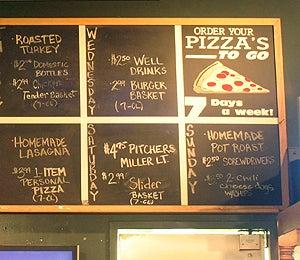 • ROASTED
TURKEY
DOMESTIC
BOTTLES
Tender Basket
(7-CL)
WEDNESDAY
• $2.50 WELL
DRINKS
• 2.99 BURGER
BASKET
(7-CL)
ORDER YOUR
PIZZA'S
TO GO
7 Days
a week!
• HOMEMADE
LASAGNA
1-ITEM
PERSONAL
PIZZA
(7-CL)
SATURDAY
• $4.95 PITCHERS
MILLER LT.
• $2.99 Slider
BASKET
(7-CL)
SUNDAY
• HOMEMADE
POT ROAST
$2.50 SCREWDRIVERS
2 Chili
cheese dogs